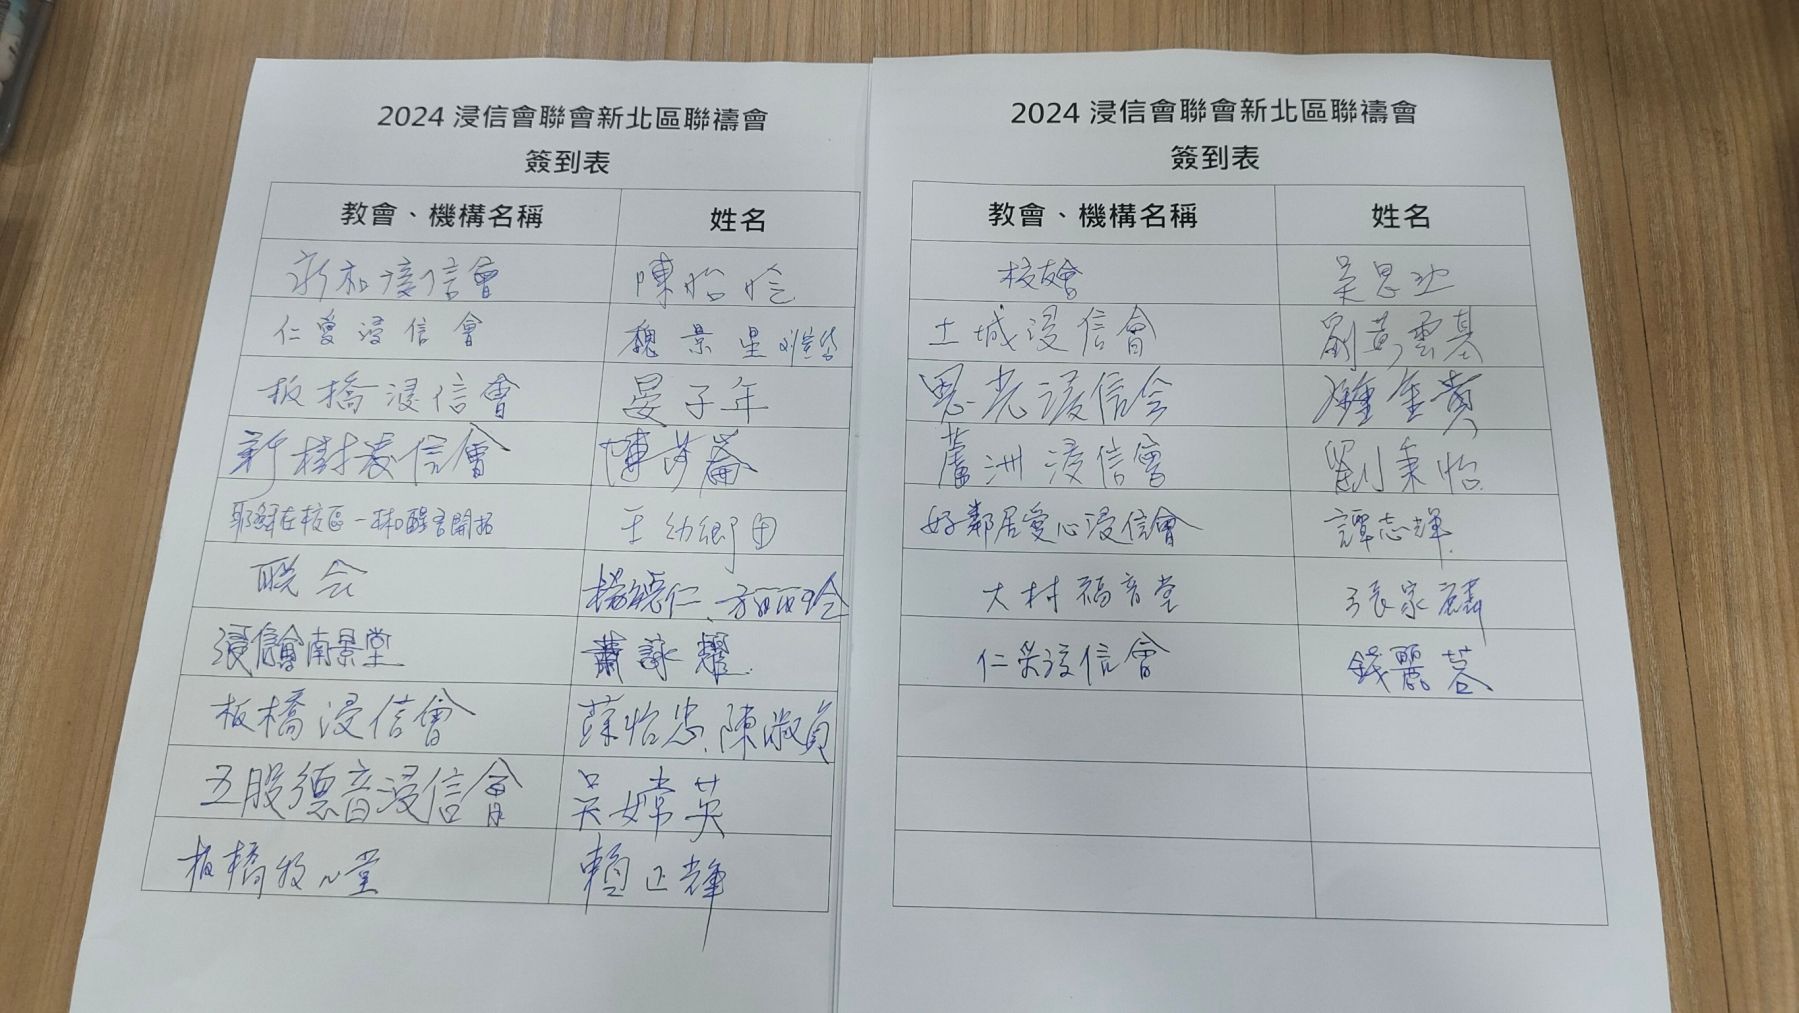 2024 浸信會聯會新北區聯禱會
簽到表
教會、機構名稱 姓名
新和浸信會 陳怡
仁愛浸信會 魏景星
板橋浸信會 晏子年
新樹浸信會
耶穌在校區 王幼鄉
聯会 楊曉仁、方
浸信會南景堂 蕭詠耀
板橋浸信會 蔡怡忠、陳淑貞
五股德音浸信會 吳嫦英
板橋牧心堂 賴正輝
2024 浸信會聯會新北區聯禱會
簽到表
教會、機構名稱 姓名
校友會 吳思
土城浸信會 劉黃雲基
恩光浸信会
蘆洲浸信會 劉秉怡
好鄰居愛心浸信會 譚志輝
大村福音堂 張家麟
仁愛浸信會 錢麗蓉